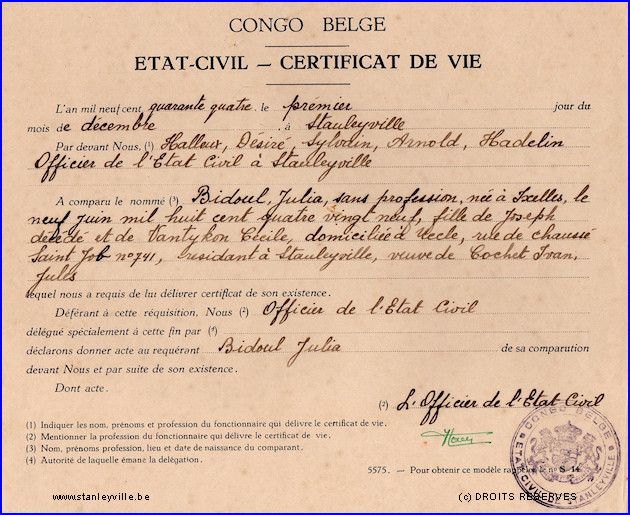 CONGO BELGE
ETAT-CIVIL — CERTIFICAT DE VIE
L'an mil neuf cent, quarante quatre, le prémier jour du
mois de décembre à Stanleyville
Par devant Nous, (¹) Halleux, Désiré, Sylvdin, Arnold, Hadelin
Officier de l'Etat Civil à Stanleyville
A comparu le nommé (³) Bidoul, Julia, sans profession, née à Ixelles, le
neuf juin mil huit cent quatre vingt neuf, fille de Joseph
décédé et de Vantykon Cécile, domiciliée à Uccle, rue de chaussé
Saint Job n° 741, residant à Stanleyville, veuve de Cochet Ivan,
Jules
lequel nous a requis de lui délivrer certificat de son existence.
Déférant à cette réquisition, Nous (²) Officier de l'Etat Civil
délégué spécialement à cette fin par (⁴)
déclarons donner acte au requérant Bidoul Julia de sa comparution
devant Nous et par suite de son existence.
Dont acte.
(²) L'Officier de l'Etat Civil
(1) Indiquer les nom, prénoms et profession du fonctionnaire qui délivre le certificat de vie.
(2) Mentionner la profession du fonctionnaire qui délivre le certificat de vie.
(3) Nom, prénoms profession, lieu et date de naissance du comparant.
(4) Autorité de laquelle émane la délégation.
CONGO BELGE
ETAT-CIVIL STANLEYVILLE
5575. – Pour obtenir ce modèle rappeler le n° S 14
www.stanleyville.be
(c) DROITS RESERVES